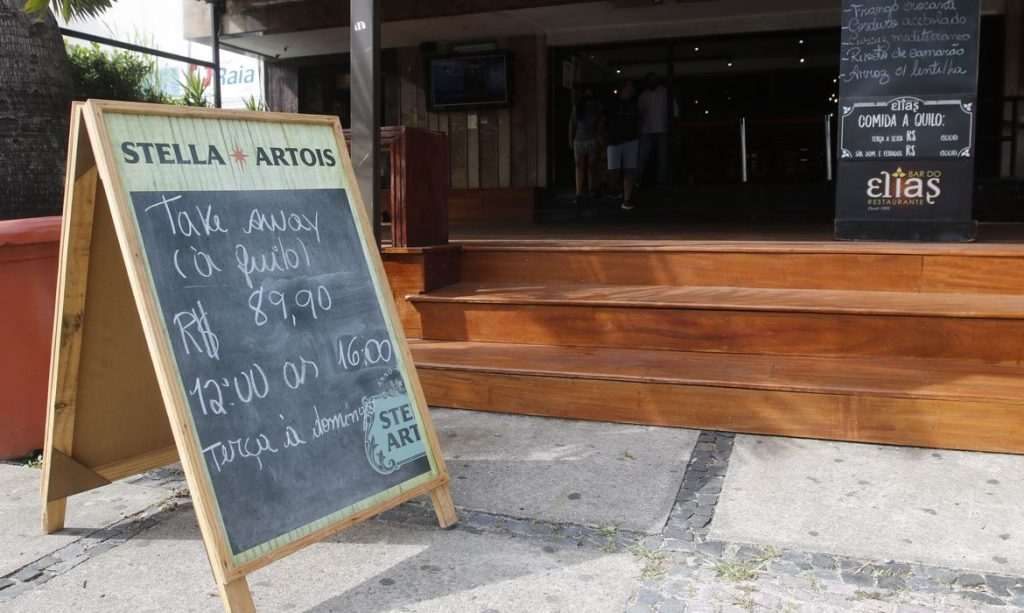 Raia
STELLA ARTOIS
Take away
(à quilo)
R$ 89,90
12:00 as 16:00
Terça à domingo
STE
ART
Risoto de camarão
Arroz c/ lentilha
elias
COMIDA A QUILO:
TERÇA A SEXTA R$
SÁB, DOM E FERIADOS R$
BAR DO
elias
RESTAURANTE